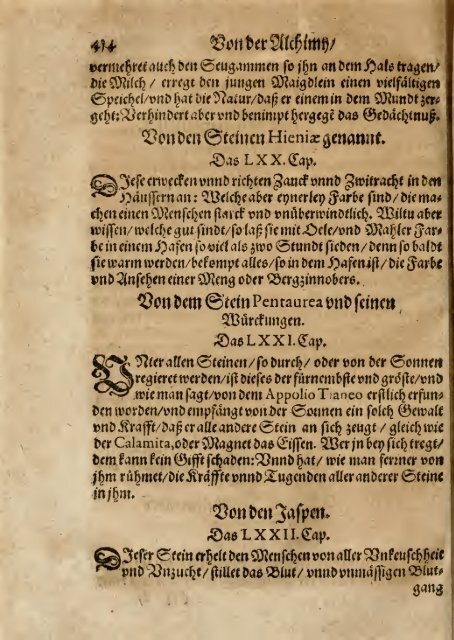 434 Von der Alchimy/
vermehret auch den Seugammen so jhn an dem Hals tragen/
die Milch / erregt den jungen Maigdlein einen vielfältigen
Speichel/vnd hat die Natur/daß er einem in dem Mundt zer-
geht: Verhindert aber vnd benimpt hergegē das Gedächtnuß.
Von den Steinen Hieniæ genannt.
Das LXX. Cap.
Diese erwecken vnnd richten Zanck vnnd Zwitracht in den
Häussern an: Welche aber eynerley Farbe sind/ die ma-
chen einen Menschen starck vnd vnüberwindtlich. Wiltu aber
wissen/welche gut sindt/so laß sie mit Oele/vnd Mahler Far-
be in einem Hafen so viel als zwo Stundt sieden/ denn so baldt
sie warm werden/bekompt alles/so in dem Hafen ist/ die Farbe
vnd Ansehen einer Meng oder Bergzinnobers.
Von dem Stein Pentaurea vnd seinen
Würckungen.
Das LXXI. Cap.
VNter allen Steinen/ so durch/ oder von der Sonnen
regieret werden/ist dieses der fürnembste vnd gröste/vnd
wie man sagt/von dem Appolio Tianeo erstlich erfun-
den worden/vnd empfängt von der Sonnen ein solch Gewalt
vnd Krafft/ daß er alle andere Stein an sich zeugt / gleich wie
der Calamita, oder Magnet das Eissen. Wer jn bey sich tregt/
dem kann kein Gifft schaden: Vnnd hat/ wie man ferrner von
jhm rühmet/die Kräffte vnnd Tugenden aller anderer Steine
in jhm.
Von den Jaspen.
Das LXXII. Cap.
Dieser Stein erhelt den Menschen von aller Vnkeuschheit
vnd Vnzucht/ stillet das Blut/ vnnd vnmässigen Blut-
gang